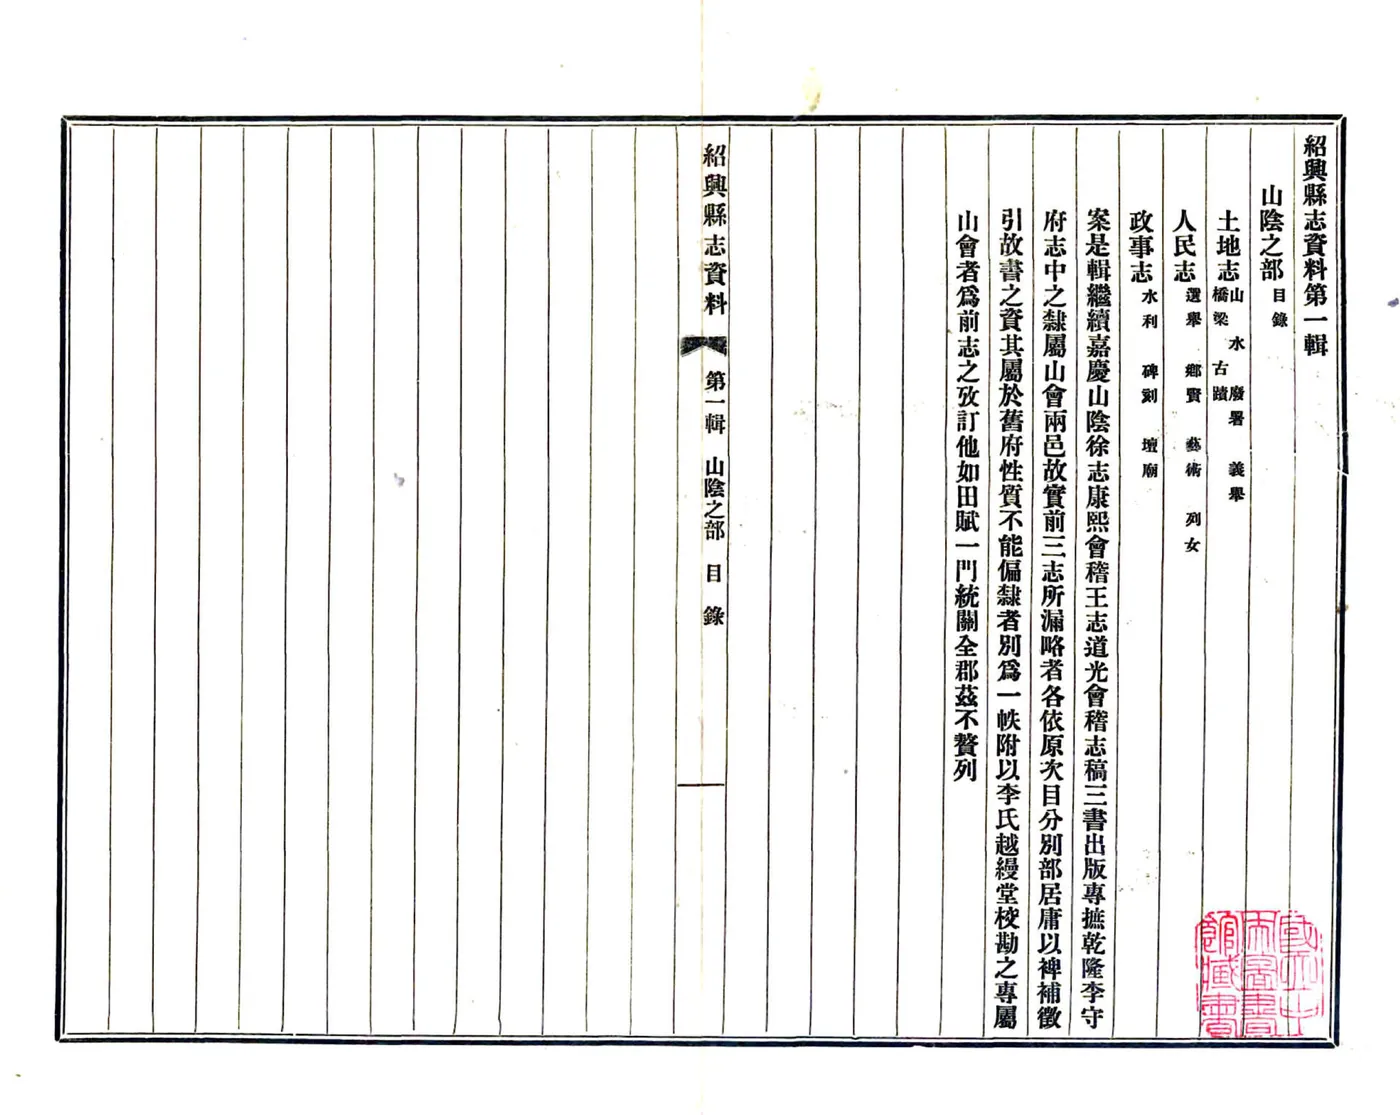 紹興縣志資料第一輯
山陰之部 目錄
土地志 山水 廢署 義舉
橋梁 古蹟
人民志 選舉 鄉賢 藝術 列女
政事志 水利 碑刻 壇廟
案是輯繼續嘉慶山陰徐志康熙會稽王志道光會稽志稿三書出版專摭乾隆李守
府志中之隸屬山會兩邑故實前三志所漏略者各依原次目分別部居庸以裨補徵
引故書之資其屬於舊府性質不能偏隸者別爲一帙附以李氏越縵堂校勘之專屬
山會者爲前志之攷訂他如田賦一門統關全郡茲不贅列
紹興縣志資料 第一輯 山陰之部 目錄 一
國立中
央圖書
館藏書